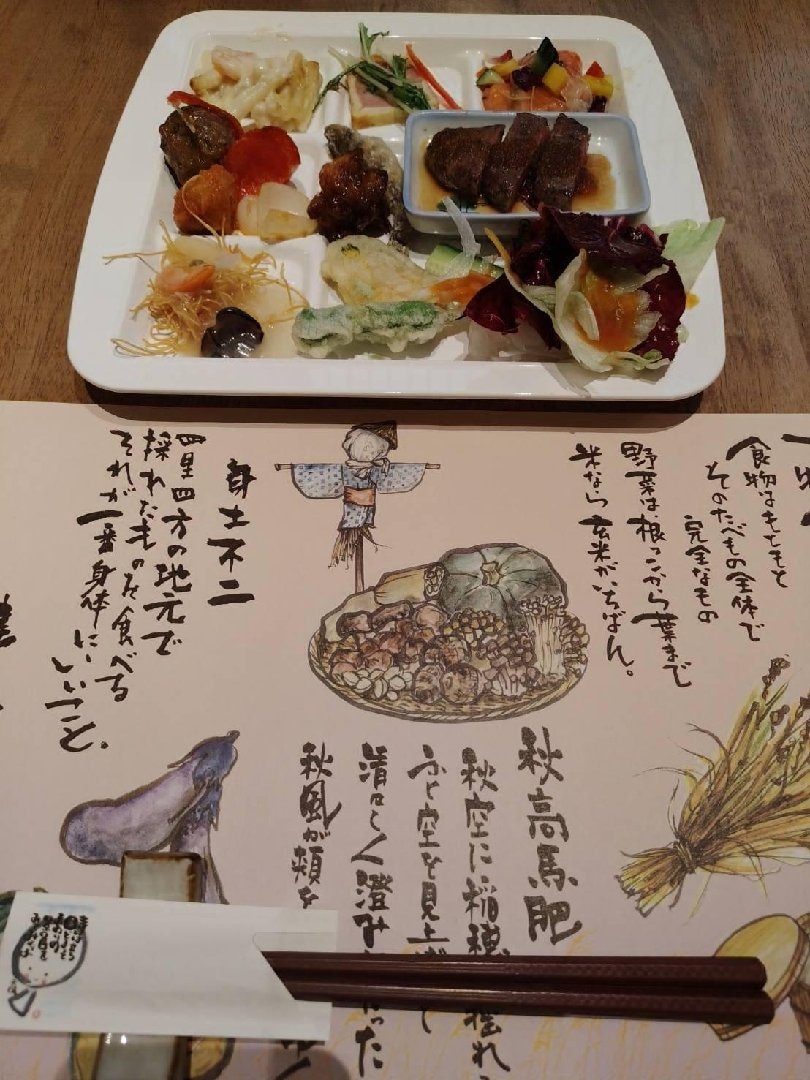 食物はもともと
そのたべもの全体で
完全なもの
野菜は、根っこから葉まで
米なら玄米がいちばん。
身土不二
四里四方の地元で
採れたものを食べる
それが一番身体に
いいこと。
秋高馬肥
秋空に稲穂
ふと空を見上げ
清々しく澄み
秋風が頬を